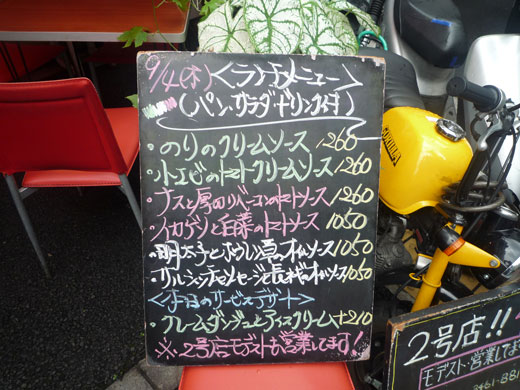 9/4(木)<ランチメニュー>
(パン・サラダ・ドリンク付)
・のりのクリームソース 1260
・小エビのトマトクリームソース 1260
・ナスと厚切りベーコンのトマトソース 1260
・イカゲソと白菜のトマトソース 1050
・明太子とほうれん草のオイルソース 1050
・サルシッチャソーセージと長ネギのオイルソース 1050
<本日のサービスデザート>
・クレームダンジュとアイスクリーム +210
※2号店モデストも営業してます!
GORILLA
2号店!!
モデスト・営業してお
3461-881